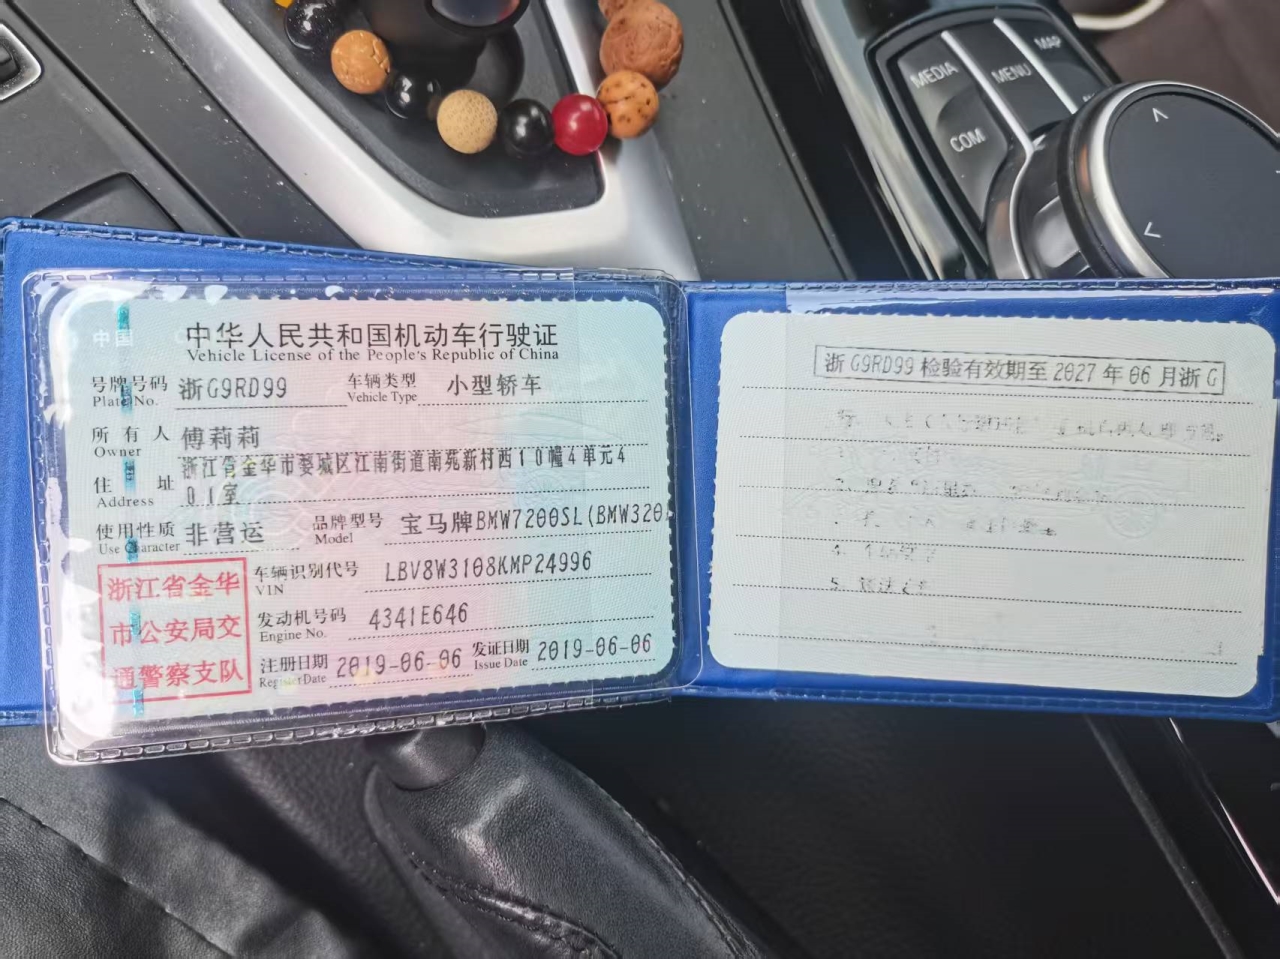 MEDIA
MENU
MAP
COM
中国
中华人民共和国机动车行驶证
Vehicle License of the People's Republic of China
号牌号码 浙G9RD99 车辆类型 小型轿车
Plate No. Vehicle Type
所有人 傅莉莉
Owner
浙江省金华市婺城区江南街道南苑新村西10幢4单元4
住址 01室
Address
使用性质 非营运 品牌型号 宝马牌BMW7200SL(BMW320
Use Character Model
浙江省金华
市公安局交
通警察支队
车辆识别代号 LBV8W3108KMP24996
VIN
发动机号码 4341E646
Engine No.
注册日期 2019-06-06 发证日期 2019-06-06
Register Date Issue Date
浙G9RD99 检验有效期至2027年06月浙G